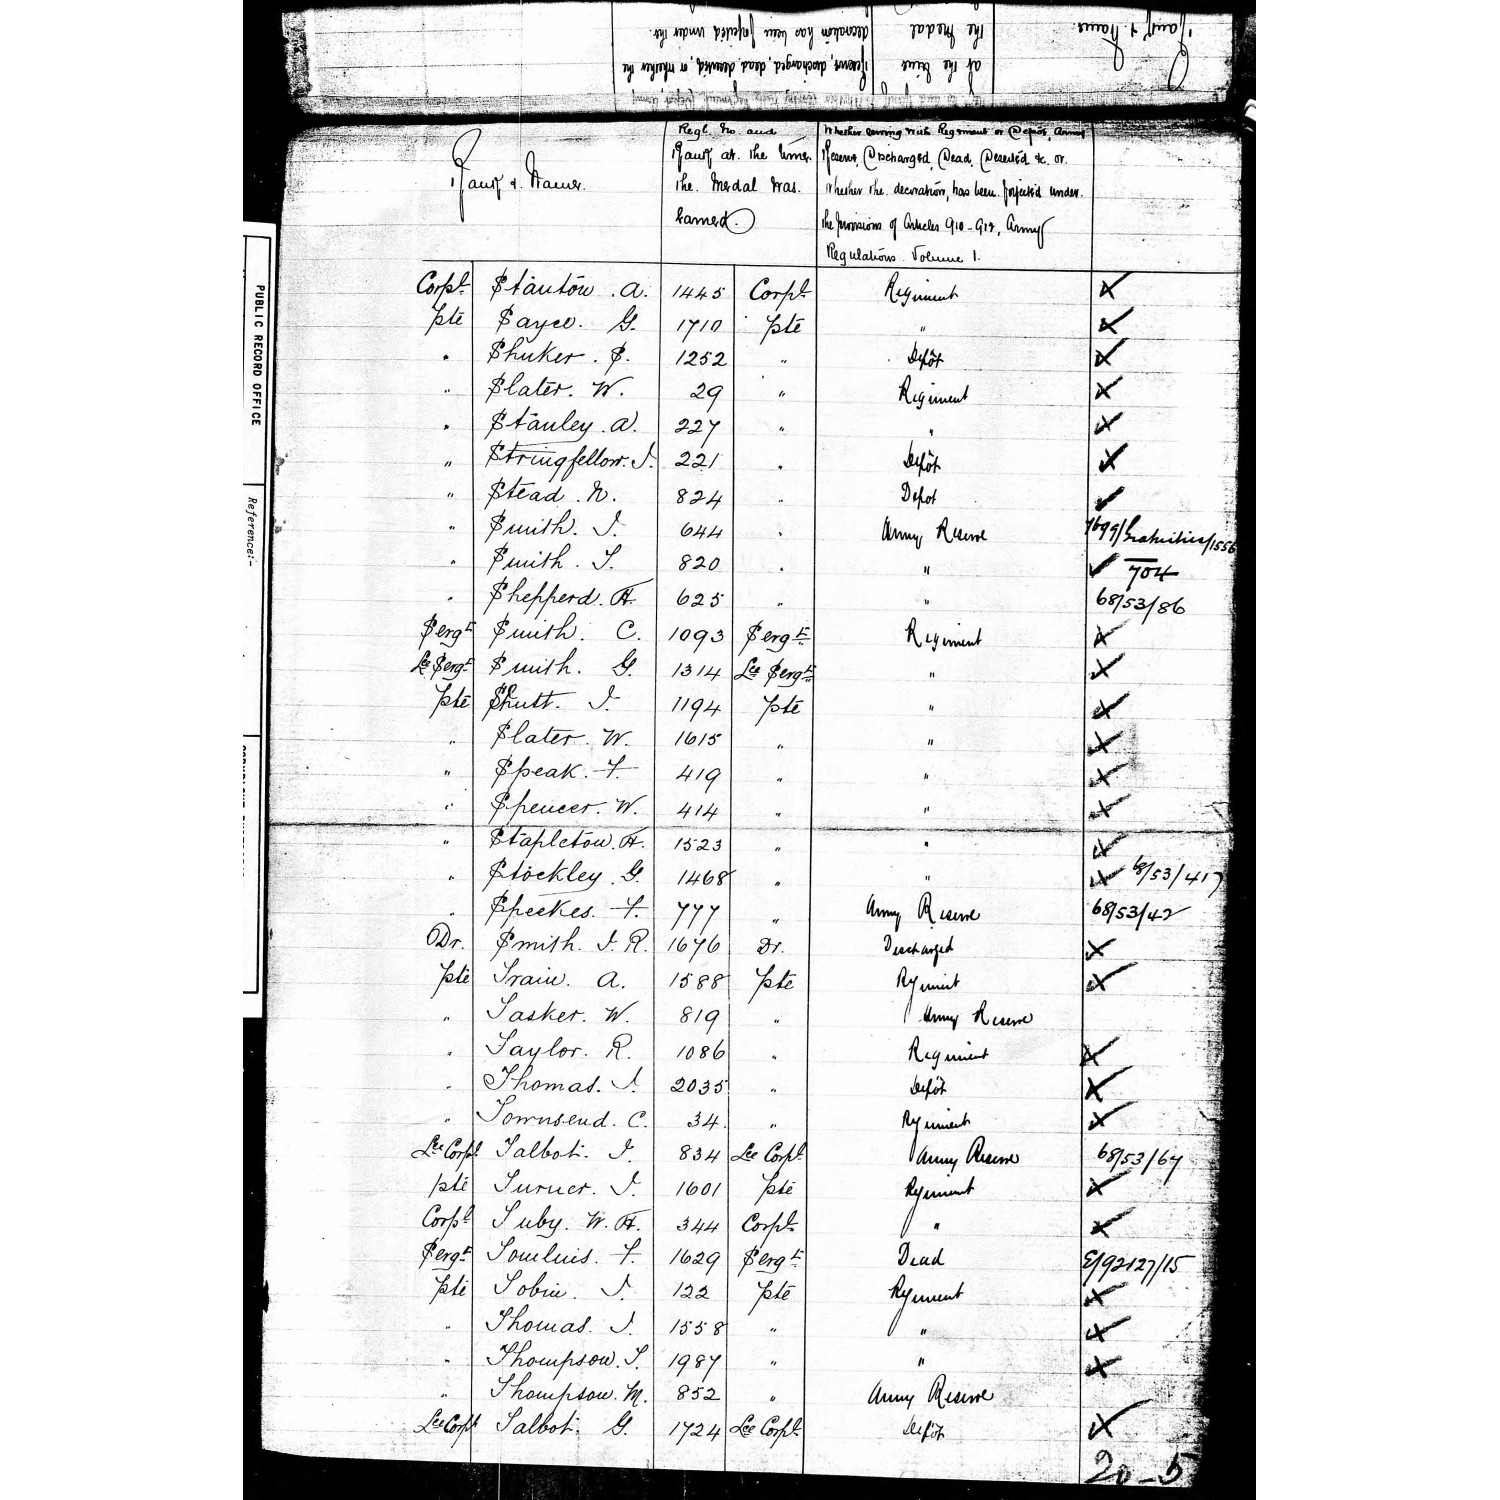 Rank & Name.
at the time
the medal
Reserve, discharged, dead, deserted, or whether the
decoration has been forfeited under the
Rank & Name.
Regl. No. and
Rank at the time
the Medal was
Earned.
Whether serving with Regiment or Depôt, Army
Reserve, Discharged, Dead, Deserted &c. or
whether the decoration, has been forfeited under
the provisions of Articles 910-912, Army
Regulations Volume 1.
PUBLIC RECORD OFFICE
Reference:-
Corpl. Stanton . A. 1445 Corpl. Regiment
Pte Sayce. G. 1710 Pte "
" Shuker . S. 1252 " Depôt
" Slater. W. 29 " Regiment
" Stanley . A. 227 " "
" Stringfellow. J. 221 " Depôt
" Stead . N. 824 " Depot
" Smith. J. 644 " Army Reserve 7699/Gratuities/1556
" Smith . T. 820 " " 704
" Shepperd. H. 625 " " 68/53/86
Sergt Smith. C. 1093 Sergt Regiment
Lce Sergt Smith. G. 1314 Lce Sergt "
Pte Shutt. J. 1194 Pte "
" Slater. W. 1615 " "
" Speak. F. 419 " "
" Spencer. W. 414 " "
" Stapleton. H. 1523 " "
" Stockley. G. 1468 " " 68/53/417
" Speekes. F. 777 " Army Reserve 68/53/42
Dr. Smith. J. R. 1676 Dr. Discharged
Pte Train. A. 1588 Pte Regiment
" Tasker. W. 819 " Army Reserve
" Taylor. R. 1086 " Regiment
" Thomas. J. 2035 " Depôt
" Townsend. C. 34. " Regiment
Lce Corpl Talbot. J. 834 Lce Corpl. Army Reserve 68/53/67
Pte Turner. J. 1601 Pte Regiment
Corpl Tuby. W. H. 344 Corpl. "
Sergt Tomlins. F. 1629 Sergt Dead E/92127/15
Pte Tobin. J. 122 Pte Regiment
" Thomas. J. 1558 " "
" Thompson. T. 1987 " "
" Thompson. M. 852 " Army Reserve
Lce Corpl Talbot. G. 1724 Lce Corpl. Depôt
20-5